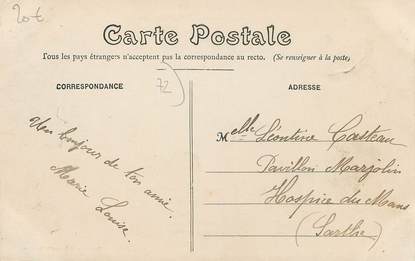 20€
Carte Postale
Tous les pays étrangers n'acceptent pas la correspondance au recto. (Se renseigner à la poste)
CORRESPONDANCE
72
ADRESSE
Un bonjour de ton amie.
Marie Louise.
Melle Léontine Casteau
Pavillon Marjolin
Hospice du Mans
(Sarthe)